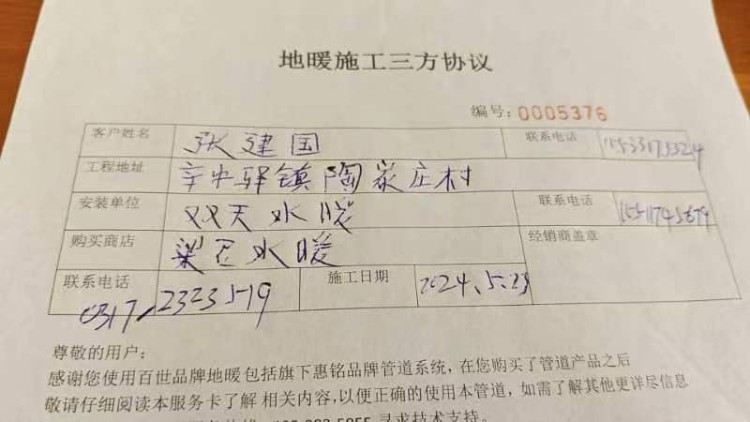 地暖施工三方协议
编号:0005376
客户姓名 张建国 联系电话
工程地址 辛中驿镇陶家庄村
安装单位 双天水暖 联系电话
购买商店 水暖 经销商盖章
联系电话 0317-2323519 施工日期 2024.5.23
尊敬的用户:
感谢您使用百世品牌地暖包括旗下惠铭品牌管道系统,在您购买了管道产品之后
敬请仔细阅读本服务卡了解 相关内容,以便正确的使用本管道,如需了解其他更详尽信息
寻求技术支持。